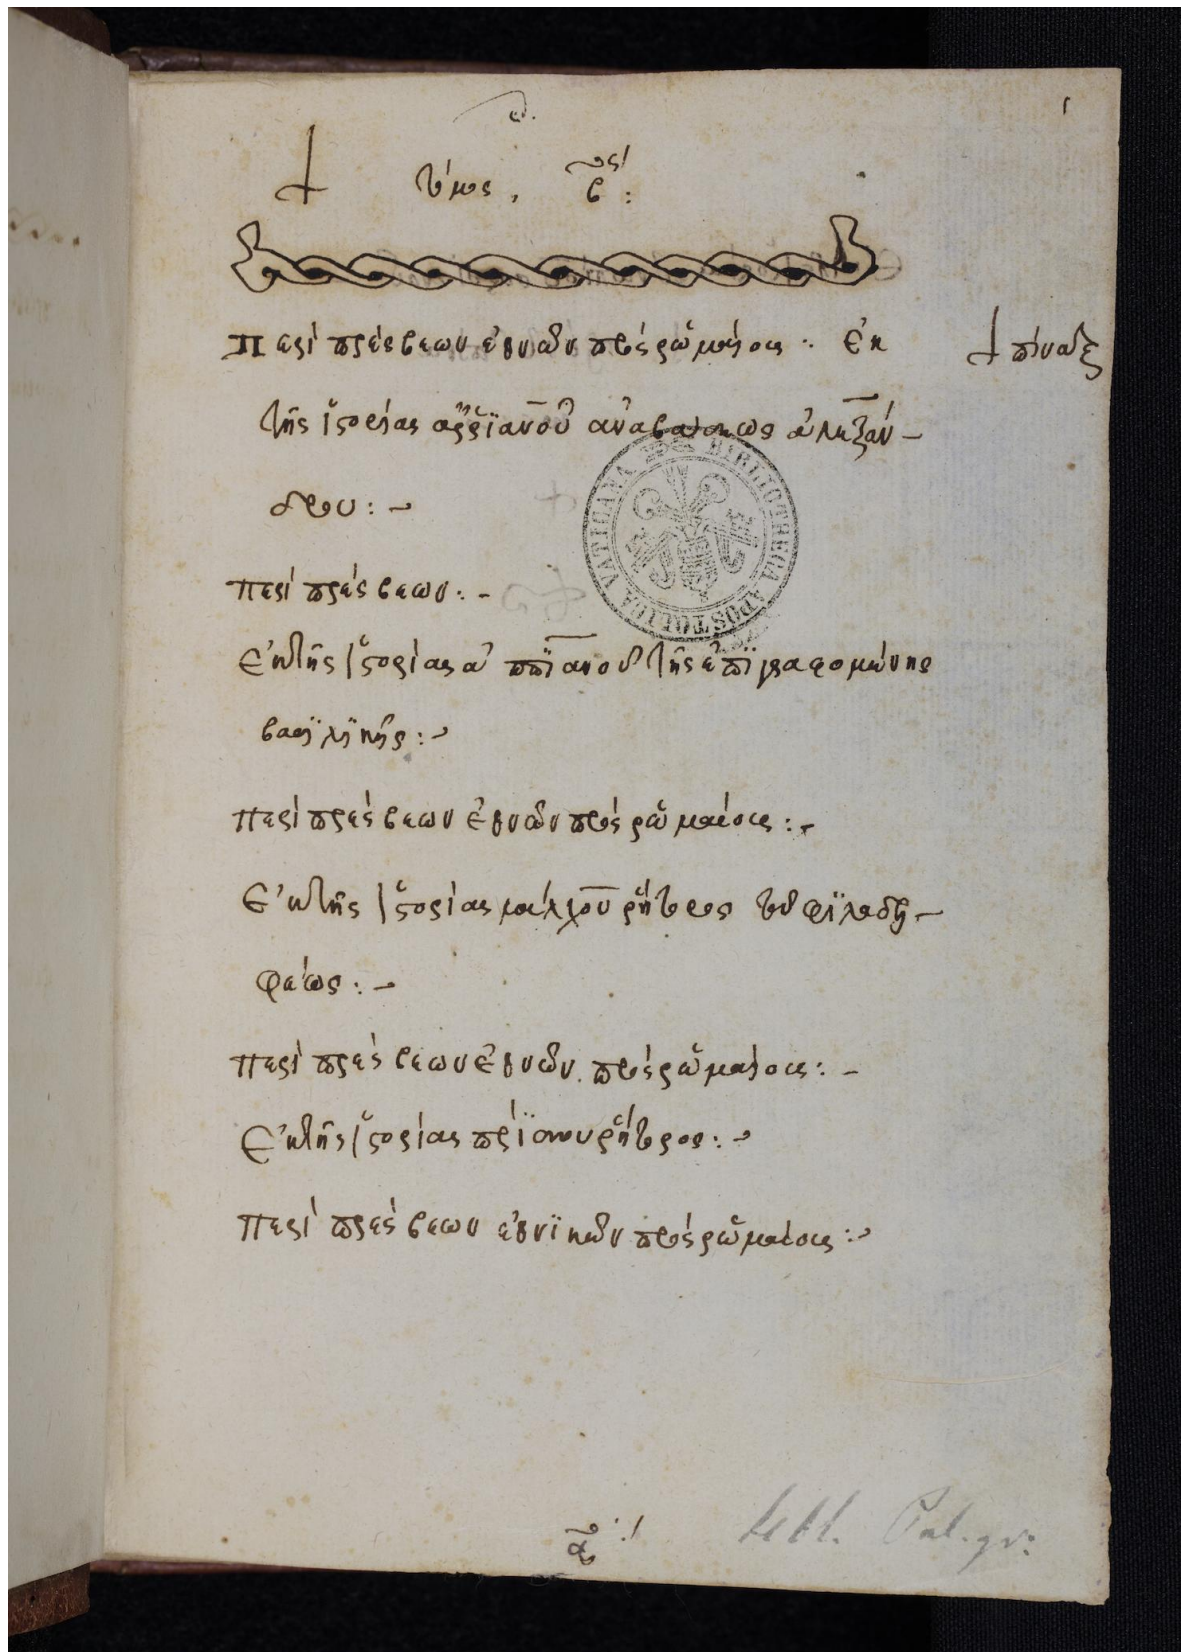 1
τόμος. β ος:
Περὶ πρέσβεων ἐθνῶν πρὸς ῥωμαίους: Ἐκ
πίναξ
τῆς ἱστορίας ἀῤῥϊανοῦ ἀναβάσεως ἀλεξάν-
δρου:-
Περὶ πρέσβεων:-
Ἐκ τῆς ἱστορίας ἀππϊανοῦ τῆς ἐπϊγραφομένης
βασϊλϊκῆς:-
Περὶ πρέσβεων ἐθνῶν πρὸς ῥωμαίους:-
Ἐκ τῆς ἱστορίας μάλχου ῥήτορος τοῦ φϊλαδελ-
φέως:-
Περὶ πρέσβεων ἐθνῶν πρὸς ῥωμαίους:-
Ἐκ τῆς ἱστορίας πρΐσκου ῥήτορος:-
Περὶ πρέσβεων ἐθνϊκῶν πρὸς ῥωμαίους:-
BIBLIOTHECA APOSTOLICA VATICANA
Pal. gr.